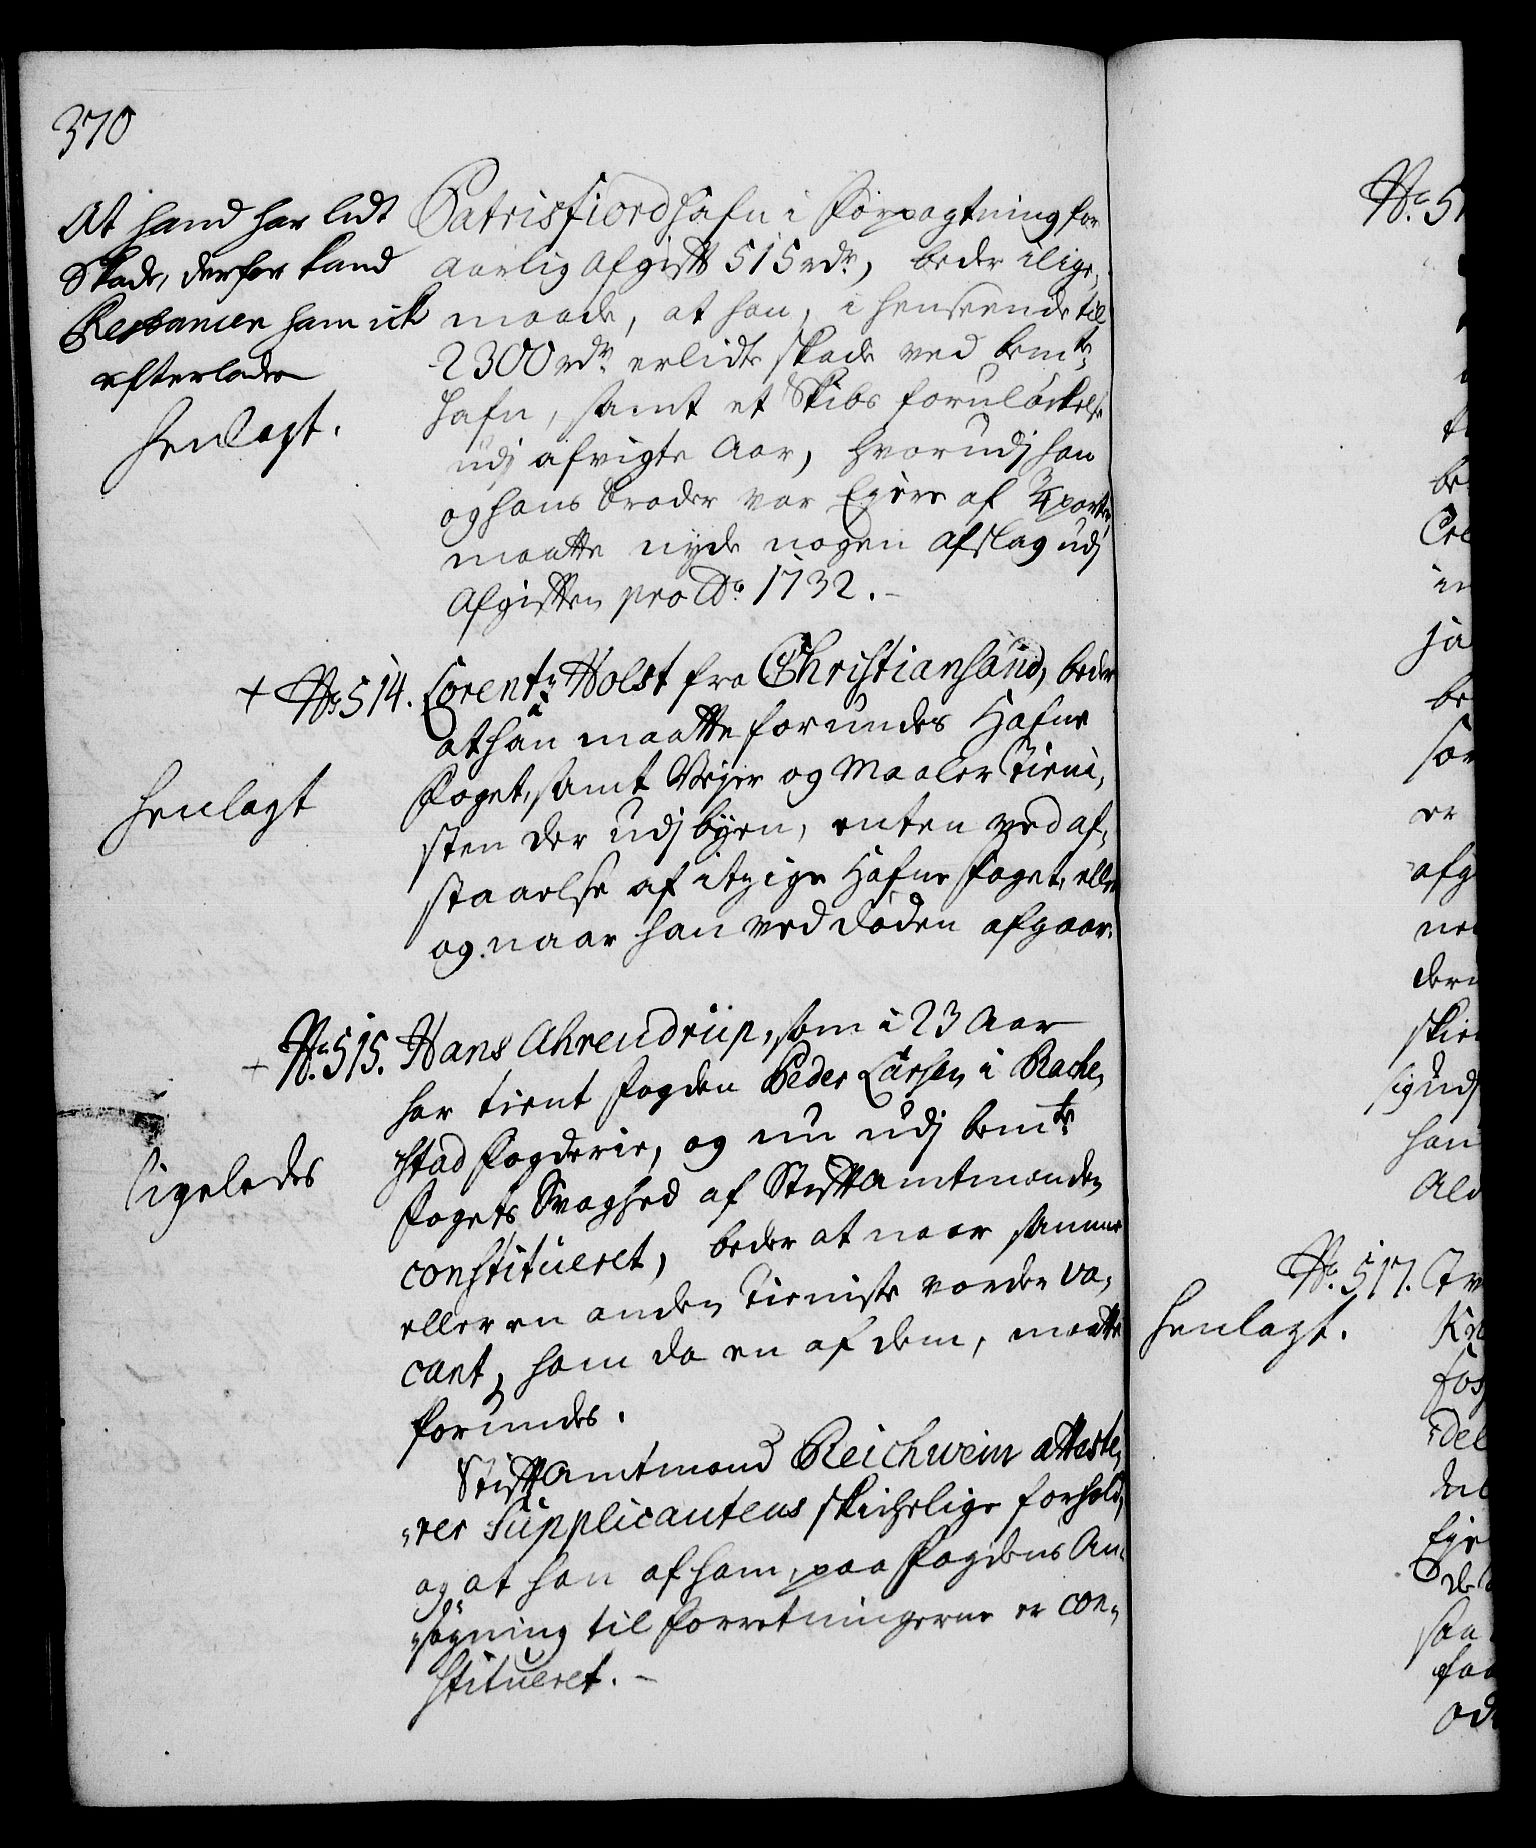 370
At hand har lidt
Skade, derfor kand
Restancen ham ick
efterlades
henlagt.
Patrisfiord hafn i Forpagtning for
aarlig Afgift 515 rdr, beder ilige,
maade, at han, i henseende til
2300 rdr erlidte skade ved bemte
hafn, samt et Skibs foruløckelse
udj afvigte Aar, hvorudj han
og hans broder var Ejere af 3/4 parter,
maatte nyde nogen afslag udj
Afgiften pro Ao 1732.
+ No 514. Lorentz Holst fra Christiansand, beder
at han maatte forundes Hafne
Foget, samt Vejer og Maaler Tieni,
sten der udj byen, enten ved af,
staaelse af itzige Hafne Foget, eller
og naar han ved døden afgaar.
henlagt
+ No. 515. Hans Ahrendrup, som i 23 Aar
har tient Fogden Peder Larsen i Racke,
stad Fogderie, og nu udj bemte
Fogets Svaghed af Stiftamtmanden
constitueret, beder at naar samme
eller en anden Tieniste vorder va,
cant, ham da en af dem, maatte
forundes.
Ligeledes
Stiftamtmand Reichwein atteste,
rer Supplicantens skichelige forhold,
og at han af ham, paa Fogdens An,
søgning til Forretningerne er con,
stitueret.
No. 51
No. 517.
henlagt.